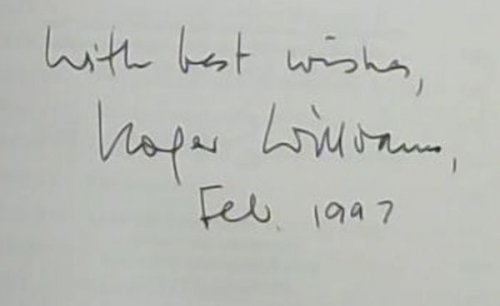 With best wishes,
Roger Williams,
Feb. 1997